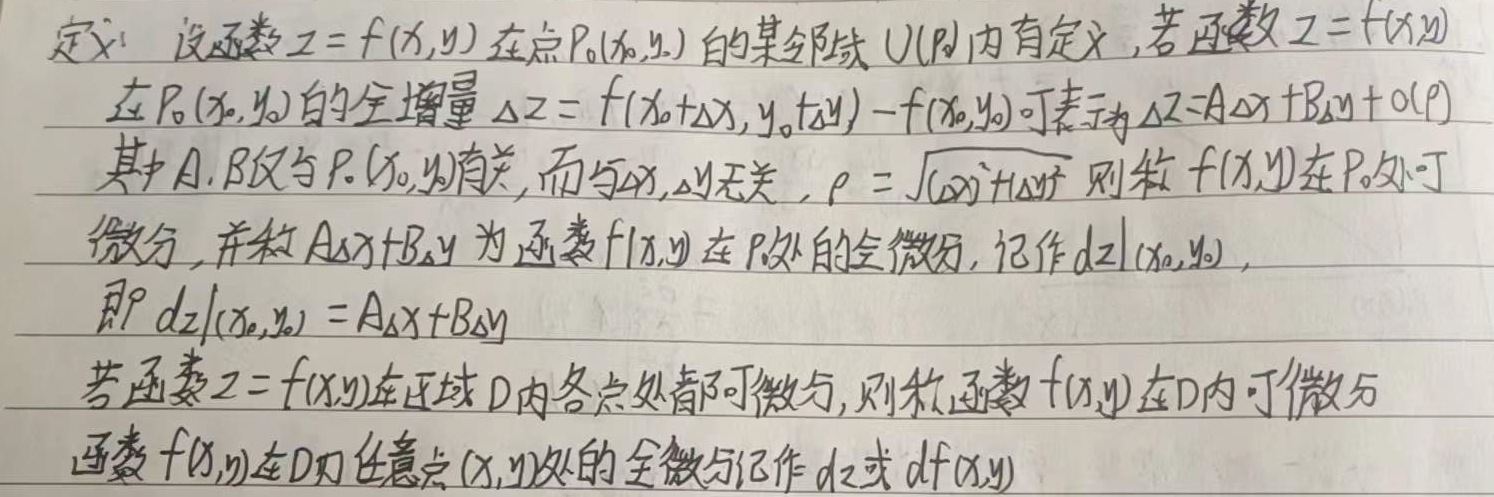 定义: 设函数 z=f(x,y) 在点P₀(x₀,y₀) 的某邻域 U(P₀) 内有定义,若函数 z=f(x,y)
在P₀(x₀,y₀)的全增量 Δz=f(x₀+Δx,y₀+Δy)-f(x₀,y₀)可表示为Δz=AΔx+BΔy+o(ρ)
其中A.B仅与P₀(x₀,y₀)有关,而与Δx,Δy无关,ρ=√((Δx)²+(Δy)²) 则称 f(x,y)在P₀处可
微分,并称AΔx+BΔy 为函数f(x,y)在P₀处的全微分,记作dz|(x₀,y₀),
即dz|(x₀,y₀)=AΔx+BΔy
若函数z=f(x,y)在区域D内各点处都可微分,则称函数f(x,y)在D内可微分
函数f(x,y)在D内任意点(x,y)处的全微分记作dz或df(x,y)